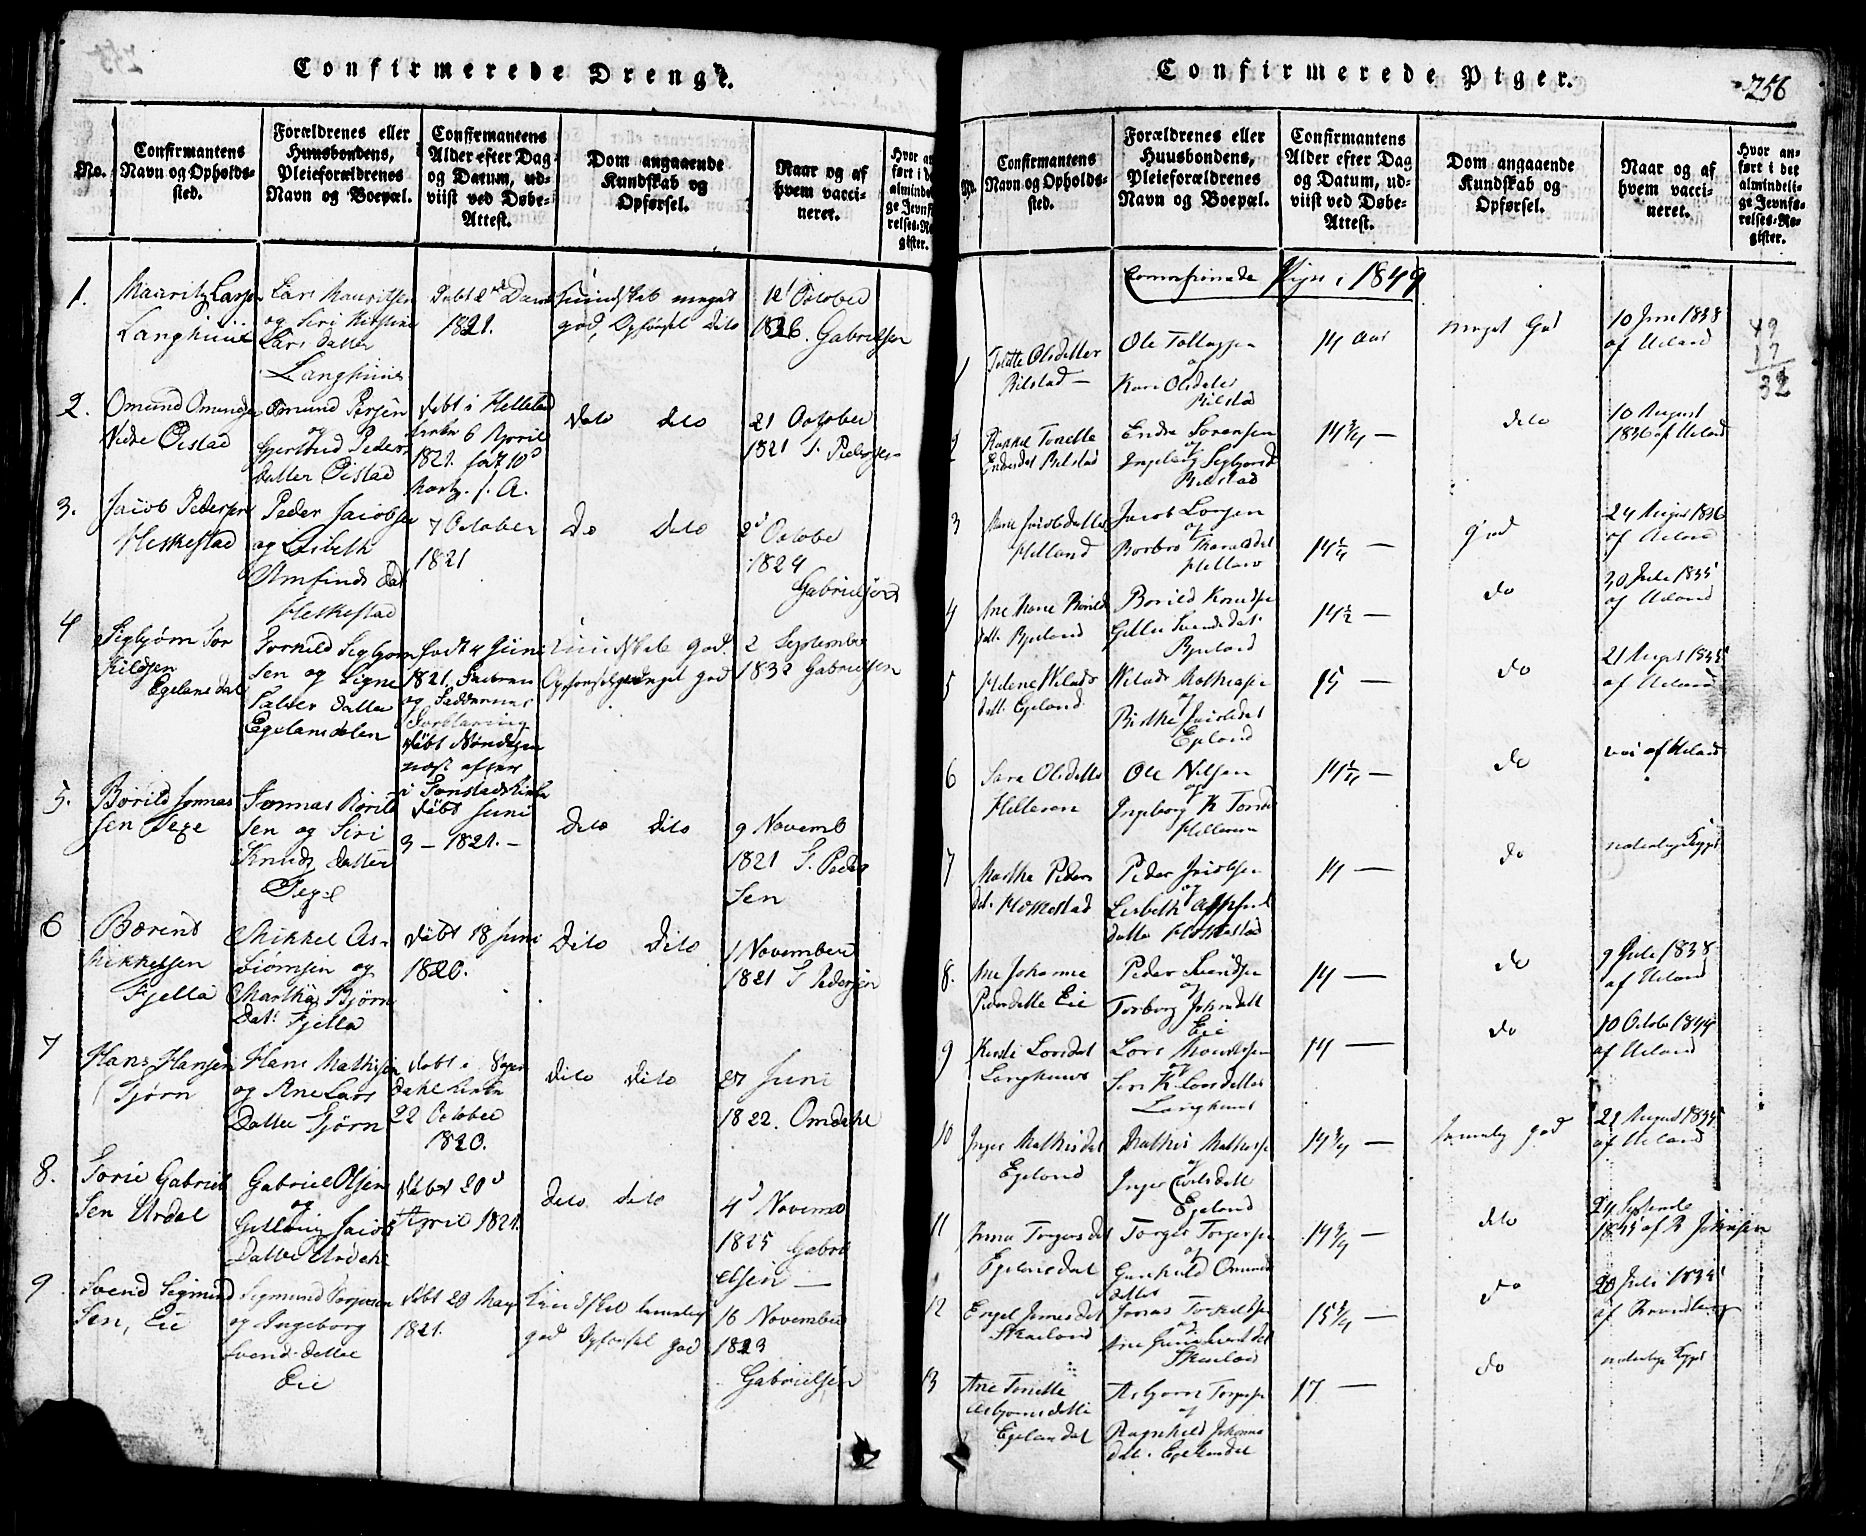 Confirmerede Drenge.
No.
Confirmantens Navn og Opholds-
sted.
Forældrenes eller
Huusbondens,
Pleieforældrenes
Navn og Boepæl.
Confirmantens
Alder efter Dag
og Datum, ud-
viist ved Døbe-
Attest.
Dom angaaende
Kundskab og
Opførsel.
Naar og af
hvem vacci-
neret.
Hvor an-
ført i de
almindeli-
ge Jevnf
relses-Re
gister.
1.
Mauritz Larsen
Langhuus
Lars Mauritsen
og Siri Kirstine
Lars Datter
Langhuus
1821.
Kundskab meget
god, Opførsel dito
12 October
1826. Gabrielsen
2.
Omund Omundsen
Nedre Øistad
Omund Persen
og
Gjertrud Peders
datter Øistad
døbt i Helleland
Kirke 6 April
1821. født 10
Marty. s. A.
dito dito
21 October
1821 S. Pedersen
3.
Jacob Pedersen
Heskestad
Peder Jacobsen
og Lisbeth
Amfinds dat
Heskestad
7 October
1821
Do dito
2 October
1824
Gabrielsen
4
Sigbjørn Tor
kildsen
Egelandsdal
Torkild Sigbjørn
sen og Signe
Salter datter
Egelandsdalen
født 4 Juni
1821.
og Faddernes
Forklaring
døbt Søndagen
næst efter
i Sonstads Kirke
Kundskab god.
Opførsel meget god
2 September
1832 Gabrielsen
5.
Børild Jonnas
sen Sege
Jonnas Børild
sen og Siri
Knuds datter
Sege
døbt Juni
3 - 1821. -
dito dito
9 Novemb
1821 S. Peder
sen
6
Bærent
Mikkelsen
Fjella
Mikkel As-
biørnsen og
Martha Bjørn
Dat: Fjella
døbt 18 Juni
1820.
Dito Dito
1 November
1821 S Pedersen
7
Hans Hansen
Tjørn
Hans Mathisen
og Ane Lars
Datter Tjørn
døbt i Sogn
dahl Kirke
22 October
1820.
dito dito
27 Juni
1822. Omdahl
8.
Torie Gabriel
sen Urdal
Gabriel Olsen
og
Jacob
Datter Urdal
døbt 20
April 1821.
dito dito
4 Novemb
1825 Gabri
elsen —
9
Svend Sigmund
sen, Eie
Sigmund Torgersen
og Ingeborg
Svend-datter
Eie
døbt 20 May
1821.
Kundskab temmelig
god Opførsel god
16 November
1823
Gabrielsen
Confirmerede Piger.
256
No.
Confirmantens
Navn og Opholds-
sted.
Forældrenes eller
Huusbondens,
Pleieforældrenes
Navn og Boepæl.
Confirmantens
Alder efter Dag
og Datum, ud-
viist ved Døbe-
Attest.
Dom angaaende
Kundskab og
Opførsel.
Naar og af
hvem vacci-
neret.
Hvor an-
ført i det
almindeli-
ge Jevnfø-
relses-Re-
gister.
Confirmerede Piger i 1849
49
17
32
1
Olsdatter
Bilstad —
Ole Tollagsen
og
Kari Olsdater
Bilstad
14 Aar
meget God
10 Juni 1838
af Ueland
2
Tonette
Endresdat Bilstad
Endre Sørensen
og
Ingeborg Sigbjørnsd
Bilstad
14 3/4 —
dito
10 August
1836 af Ueland
3
Marie Jacobsdatter
Helland
Jacob Larsen
og
Borbro Tharaldsdat
Helland
14 1/4 —
god
24 August 1836
af Ueland
4
Ane Marie Børilds
datt. Bjelland
Børild Knudsen
Gitle Svendsdat.
Bjelland
14 1/2 —
do
30 Juli 1835
af Ueland
5
Helene Nilsds
datt. Egeland
Mathiasen
og
Birthe Jacobsdat
Egeland
15 —
do
21 August 1835
af Ueland
6
Sara Olsdatter
Helleren
Ole Nilsen
og
Ingeborg K Tons
Helleren
14 1/4 —
do
vac af Ueland
7
Martha Peders
dat. Heskestad
Peder Jacobsen
og
Lisbeth
datter Heskestad
14 —
do
naturlige Kopper
8.
Ane Johanne
Pedersdatter Eie
Peder Svendsen
og
Torborg Johnsdatt
Eie
14 —
do
9 Julie 1838
af Ueland
9
Kirsti Larsdat
Langhuus
Lars Mauritsen
og
Siri K. Larsdatter
Langhuus
14 —
do
10 Octobe 1844
af Ueland
10
Inger Mathisdat
Egeland
Mathis Mathisen
og
Inger Carlsdatt
Egeland
14 3/4 —
temmelig god
21 August 1835
af Ueland
11
Anna Torgersdat
Egelandsdal
Torger Torgersen
og
Gunhild Omunds
datter
14 3/4 —
dito
24 Septembe
1835 af B Johnsen
12
Engel Jonasdat
Skarland
Jonas Torkildsen
og
Ane
Skarland
15 3/4 —
do
20 Juli 1835
af
13
Ane Tonette
Asbjørnsdatter
Egelandsdal
Asbjørn Torgersen
og
Ragnhild Johannes
dat. Egelandsdal
17 —
do
naturlige Kopper